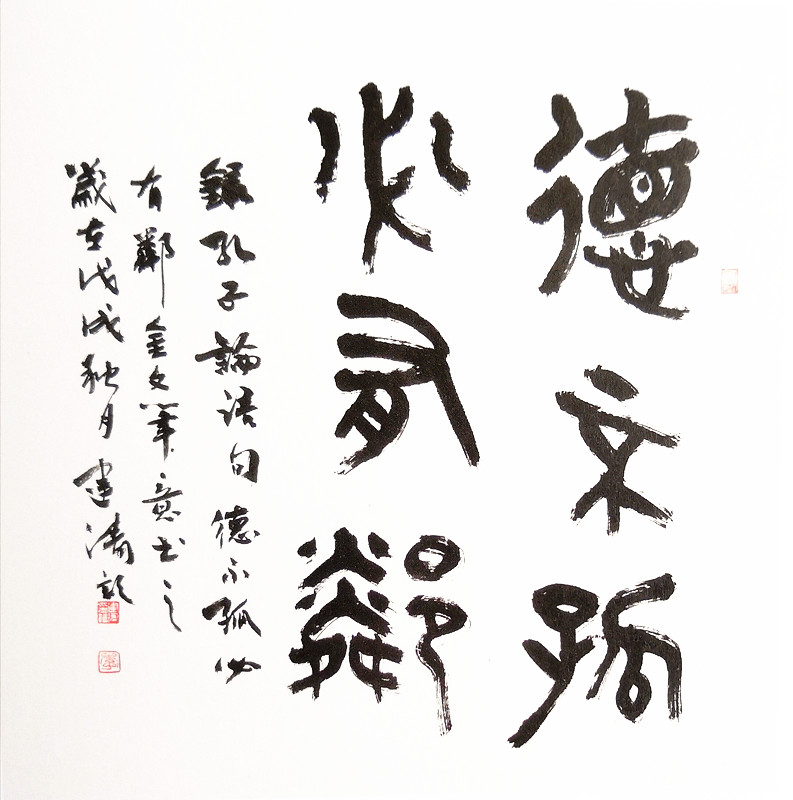 德不孤
必有鄰
錄孔子論語句德不孤必
有鄰金文筆意書之
歲在戊戌秋月建濤記